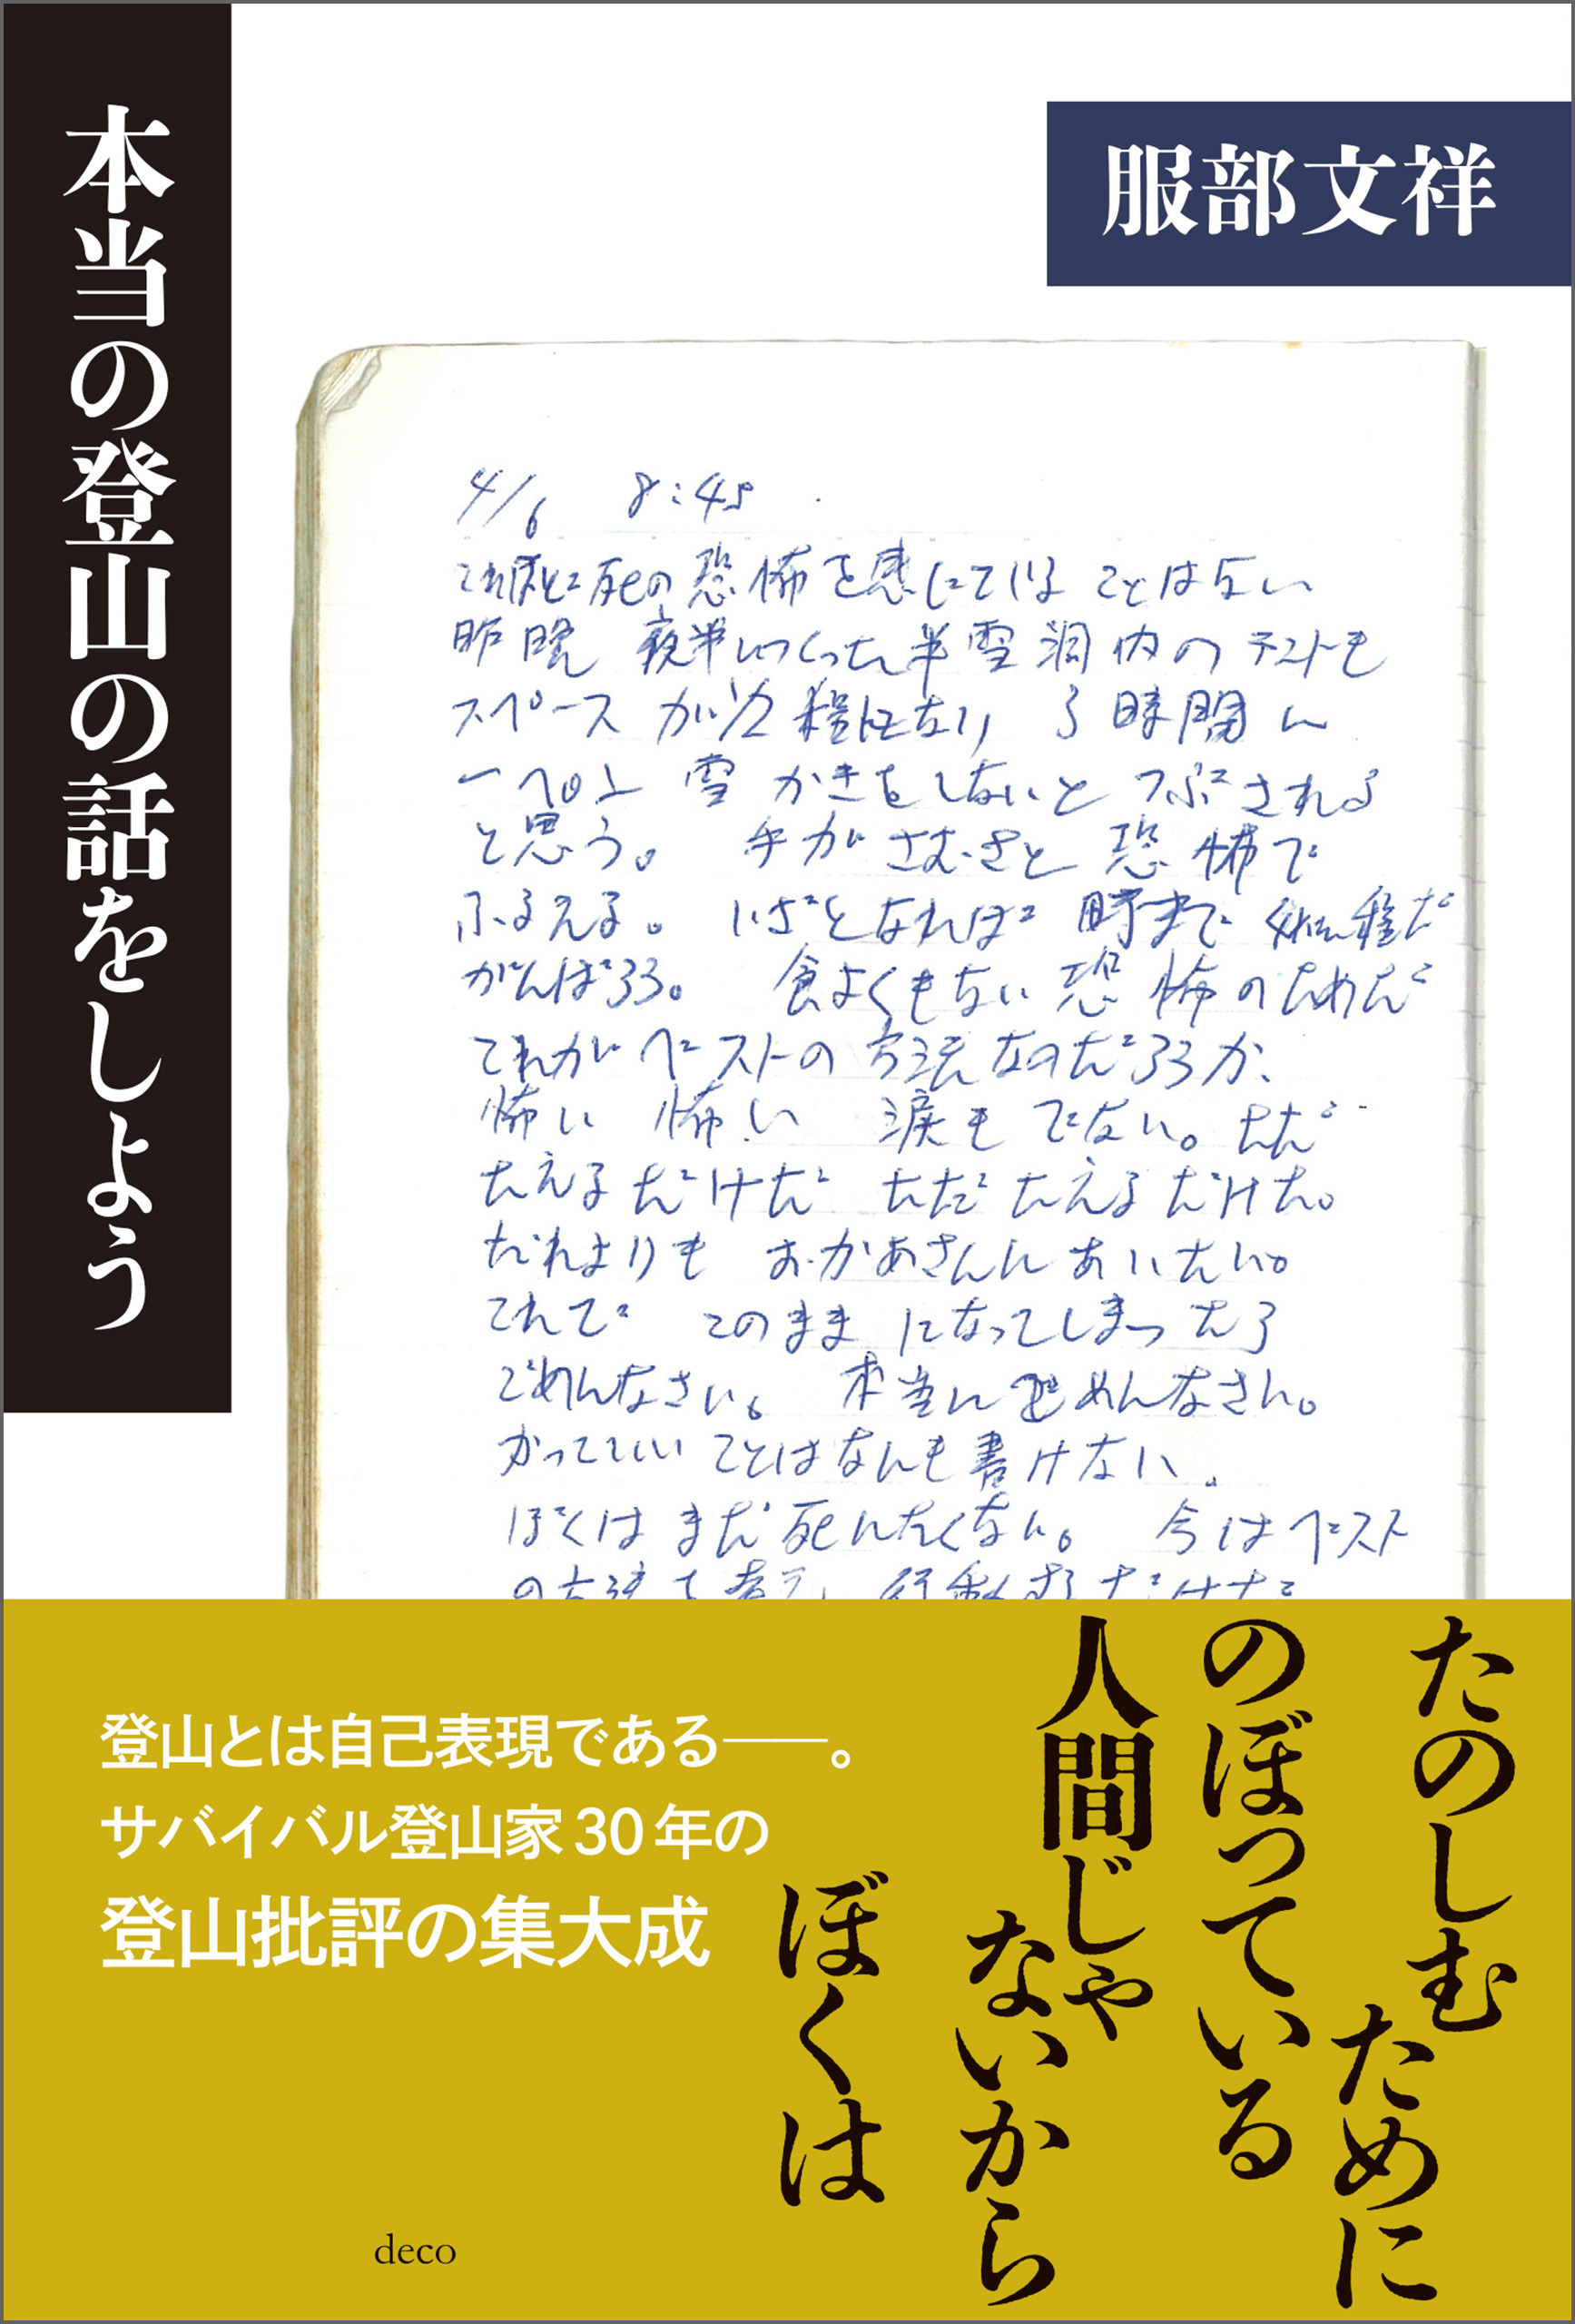 本当の登山の話をしよう
服部文祥
4/6 8:45
これほど死の恐怖を感じていることはない
昨晩 夜半につくった半雪洞内のテントも
スペースが1/2程になり 3時間に
一ぺん 雪かきをしないと つぶされる
と思う。 手がさむさと恐怖で
ふるえる。 いざとなれば 時まで
がんばろう。 食よくもない 恐怖のためだ
これがベストの方法なのだろうか、
怖い 怖い 涙もでない。ただ
たえるだけだ ただたえるだけだ。
だれよりも おかあさんにあいたい。
これで このままになってしまったら
ごめんなさい。 本当にごめんなさい。
かっこいいことはなんも書けない。
ぼくはまだ死にたくない。 今はベスト
の方法を考え、行動するだけだ
たのしむ ために
のぼっている
人間じゃ
ないから
ぼくは
登山とは自己表現である――。
サバイバル登山家30年の
登山批評の集大成
deco